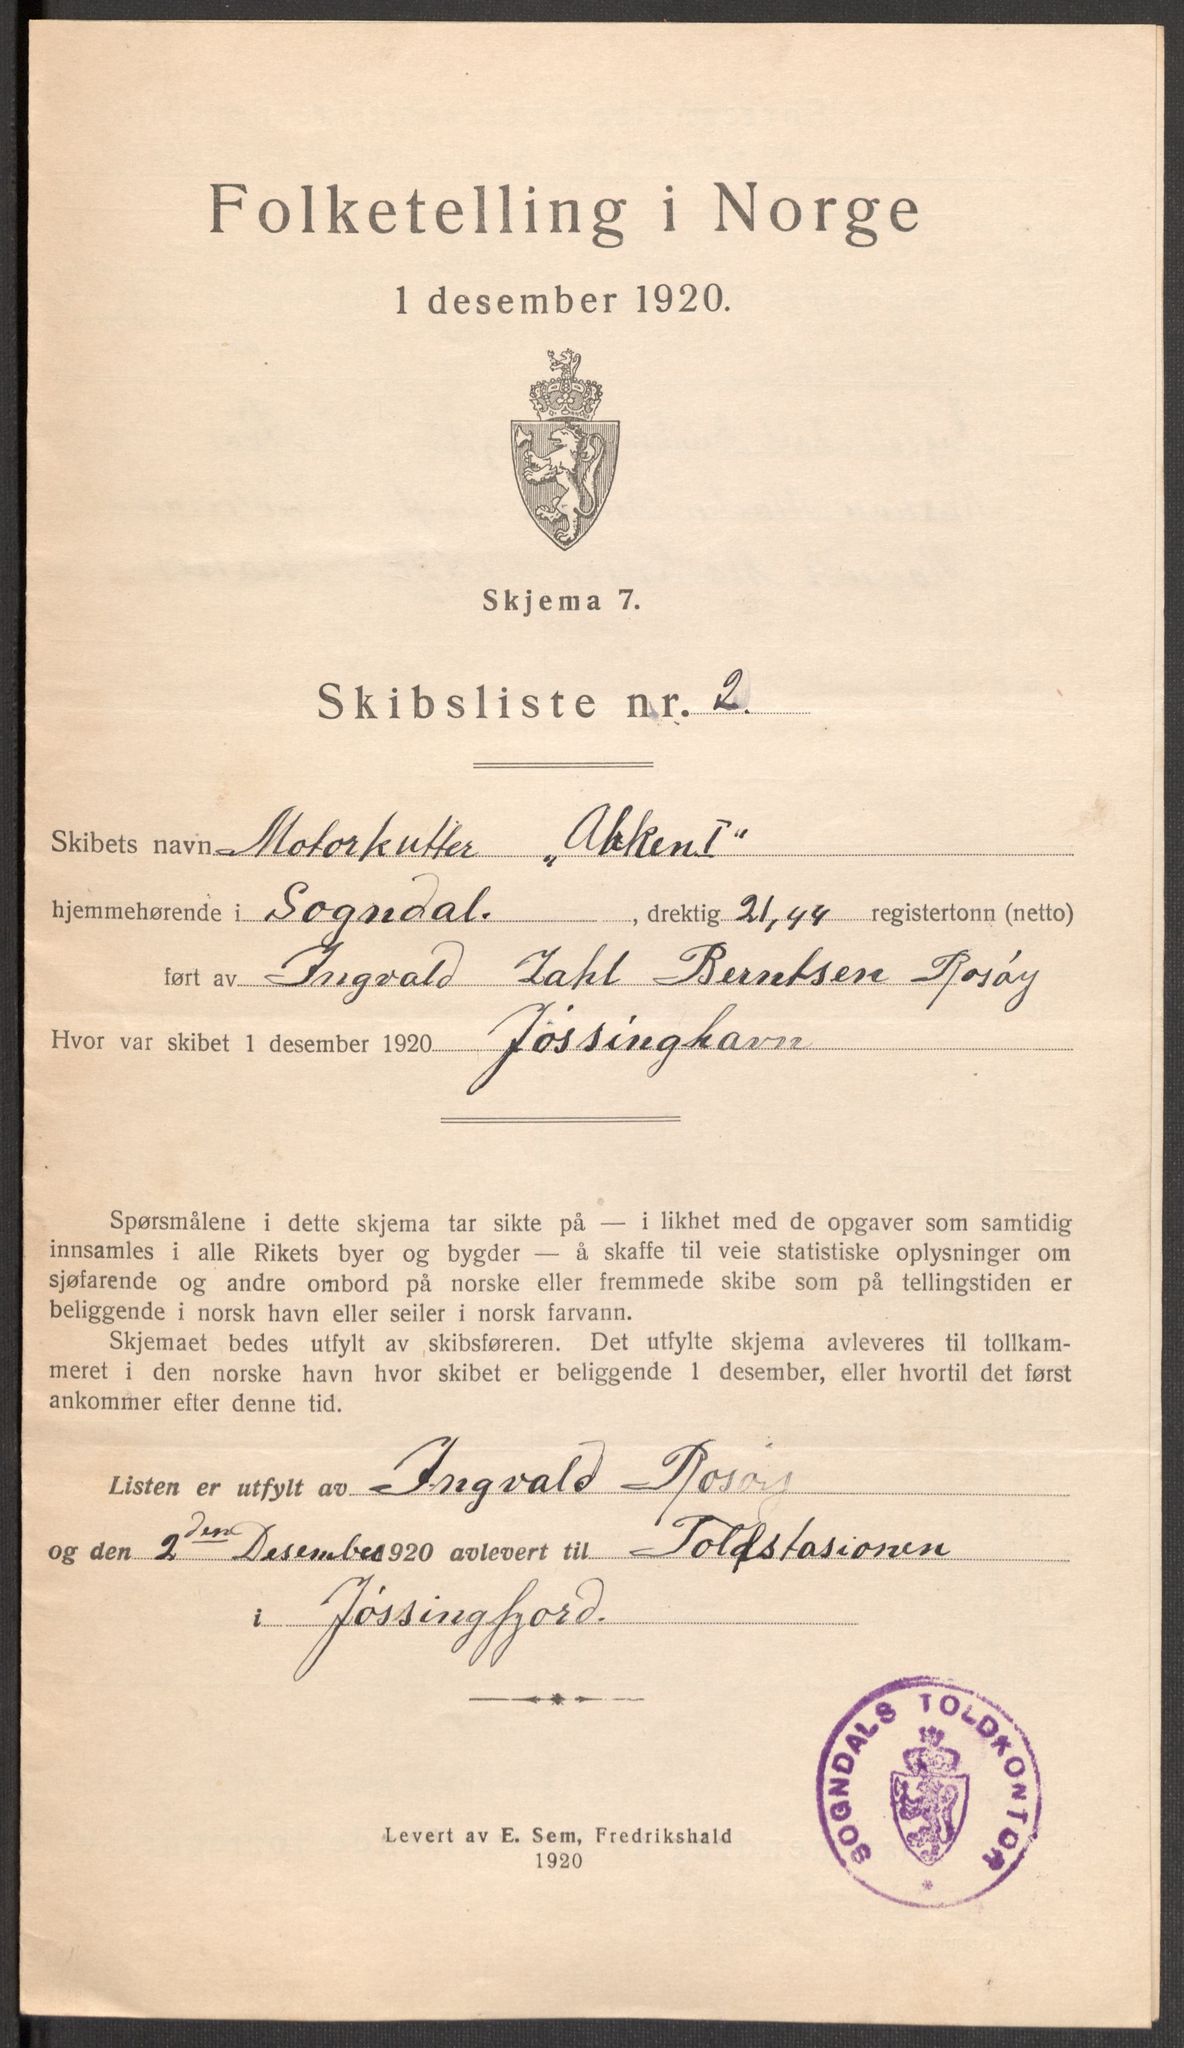 Folketelling i Norge
1 desember 1920.
Skjema 7.
Skibsliste nr. 2.
Skibets navn Motorkutter „ I“
hjemmehørende i Sogndal. , drektig 21,44 registertonn (netto)
ført av Ingvald Zahl Berntsen Rosøy
Hvor var skibet 1 desember 1920 Jøssinghavn
Spørsmålene i dette skjema tar sikte på — i likhet med de opgaver som samtidig
innsamles i alle Rikets byer og bygder — å skaffe til veie statistiske oplysninger om
sjøfarende og andre ombord på norske eller fremmede skibe som på tellingstiden er
beliggende i norsk havn eller seiler i norsk farvann.
Skjemaet bedes utfylt av skibsføreren. Det utfylte skjema avleveres til tollkam-
meret i den norske havn hvor skibet er beliggende 1 desember, eller hvortil det først
ankommer efter denne tid.
Listen er utfylt av Ingvald Rosøy
og den 2den Desember 1920 avlevert til Toldstasionen
i Jøssingfjord.
SOGNDALS TOLDKONTOR
Levert av E. Sem, Fredrikshald
1920